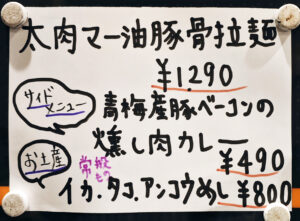 太肉マー油豚骨拉麺
¥1,290
サイドメニュー
青梅産豚ベーコンの
燻し肉カレー
¥490
お土産
常磐もの
イカ.タコ.アンコウめし ¥800